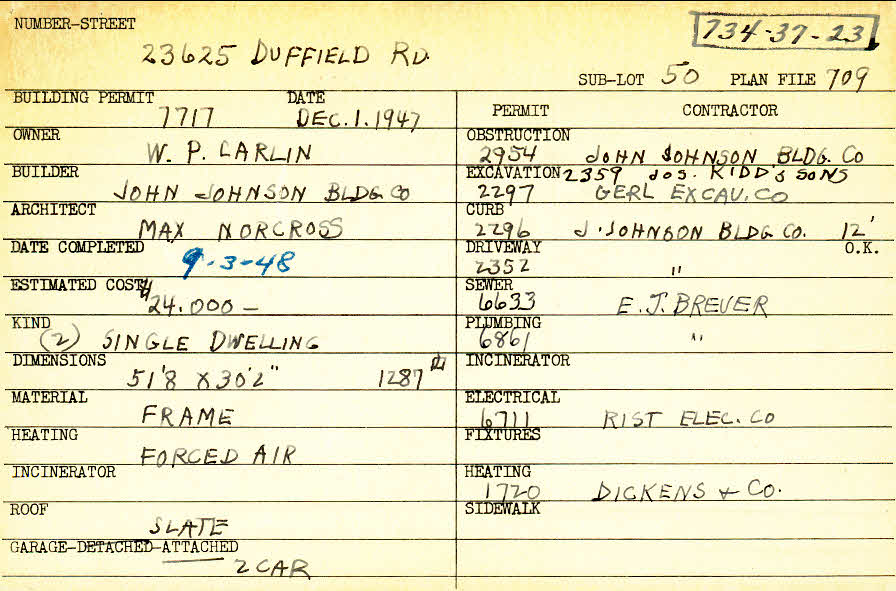 NUMBER-STREET
734-37-23
23625 DUFFIELD RD.
SUB-LOT 50 PLAN FILE 709
BUILDING PERMIT DATE
7717 DEC. 1. 1947
OWNER
W. P. CARLIN
BUILDER
JOHN JOHNSON BLDG CO
ARCHITECT
MAX NORCROSS
DATE COMPLETED
9-3-48
ESTIMATED COST
$24.000 —
KIND
(2) SINGLE DWELLING
DIMENSIONS
51'8 X 30'2" 1287
MATERIAL
FRAME
HEATING
FORCED AIR
INCINERATOR
ROOF
SLATE
GARAGE-DETACHED-ATTACHED
2 CAR
PERMIT CONTRACTOR
OBSTRUCTION
2954 JOHN JOHNSON BLDG. CO
EXCAVATION 2359 JOS. KIDD'S SONS
2297 GERL EXCAV. CO
CURB
2296 J. JOHNSON BLDG CO. 12'
DRIVEWAY O.K.
2352 "
SEWER
6633 E. J. BREUER
PLUMBING
6861 "
INCINERATOR
ELECTRICAL
6711 RIST ELEC. CO
FIXTURES
HEATING
1720 DICKENS & CO.
SIDEWALK